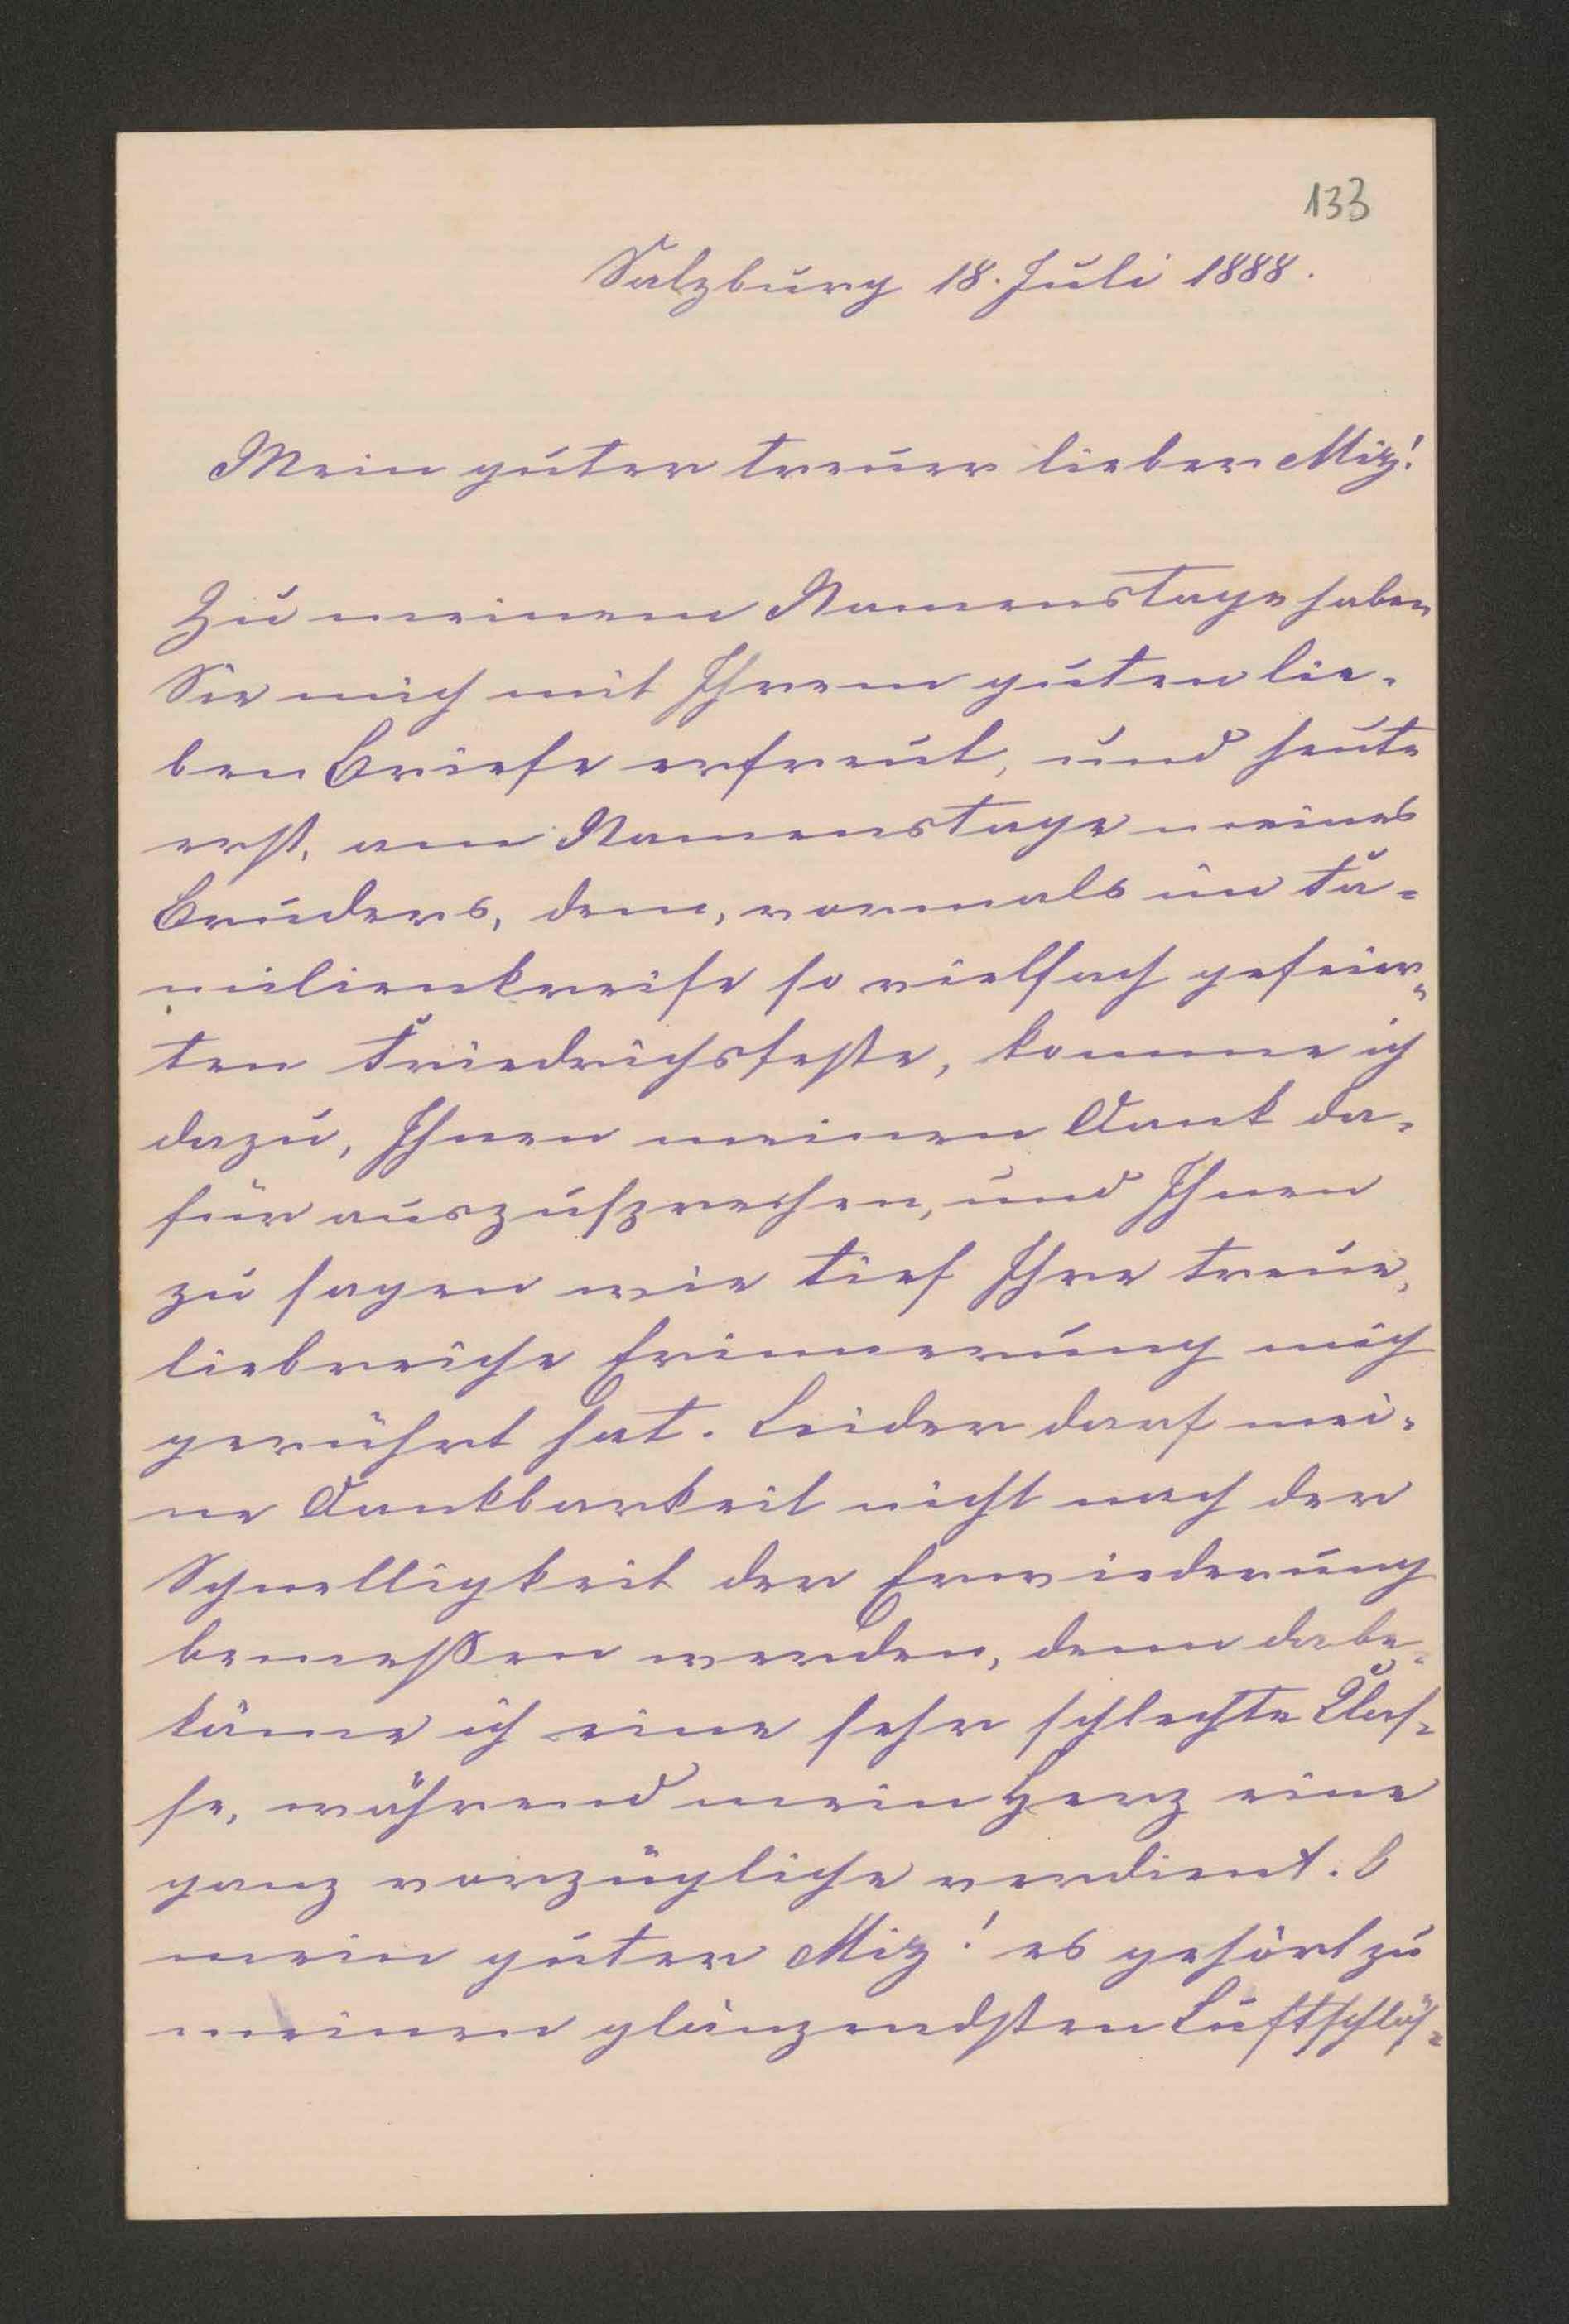 133
Salzburg 18. Juli 1888.
Mein guter treuer lieber Miz!
Zu meinem Namenstage haben
Sie mich mit Ihrem guten lie-
ben Briefe erfreut, und heute
erst, am Namenstage meines
Bruders, dem, vormals im Fa-
milienkreise so vielfach gefeier-
ten Friedrichsfeste, komme ich
dazu, Ihnen meinen Dank da-
für auszusprechen, und Ihnen
zu sagen wie tief Ihre treue,
liebreiche Erinnerung mich
gerührt hat. Leider darf mei-
ne Dankbarkeit nicht nach der
Schnelligkeit der Erwiederung
bemeßen werden, denn da be-
käme ich eine sehr schlechte Clas-
se, während mein Herz eine
ganz vorzügliche verdient. O
mein guter Miz! es gehört zu
meinen glänzendsten Luftschlös-